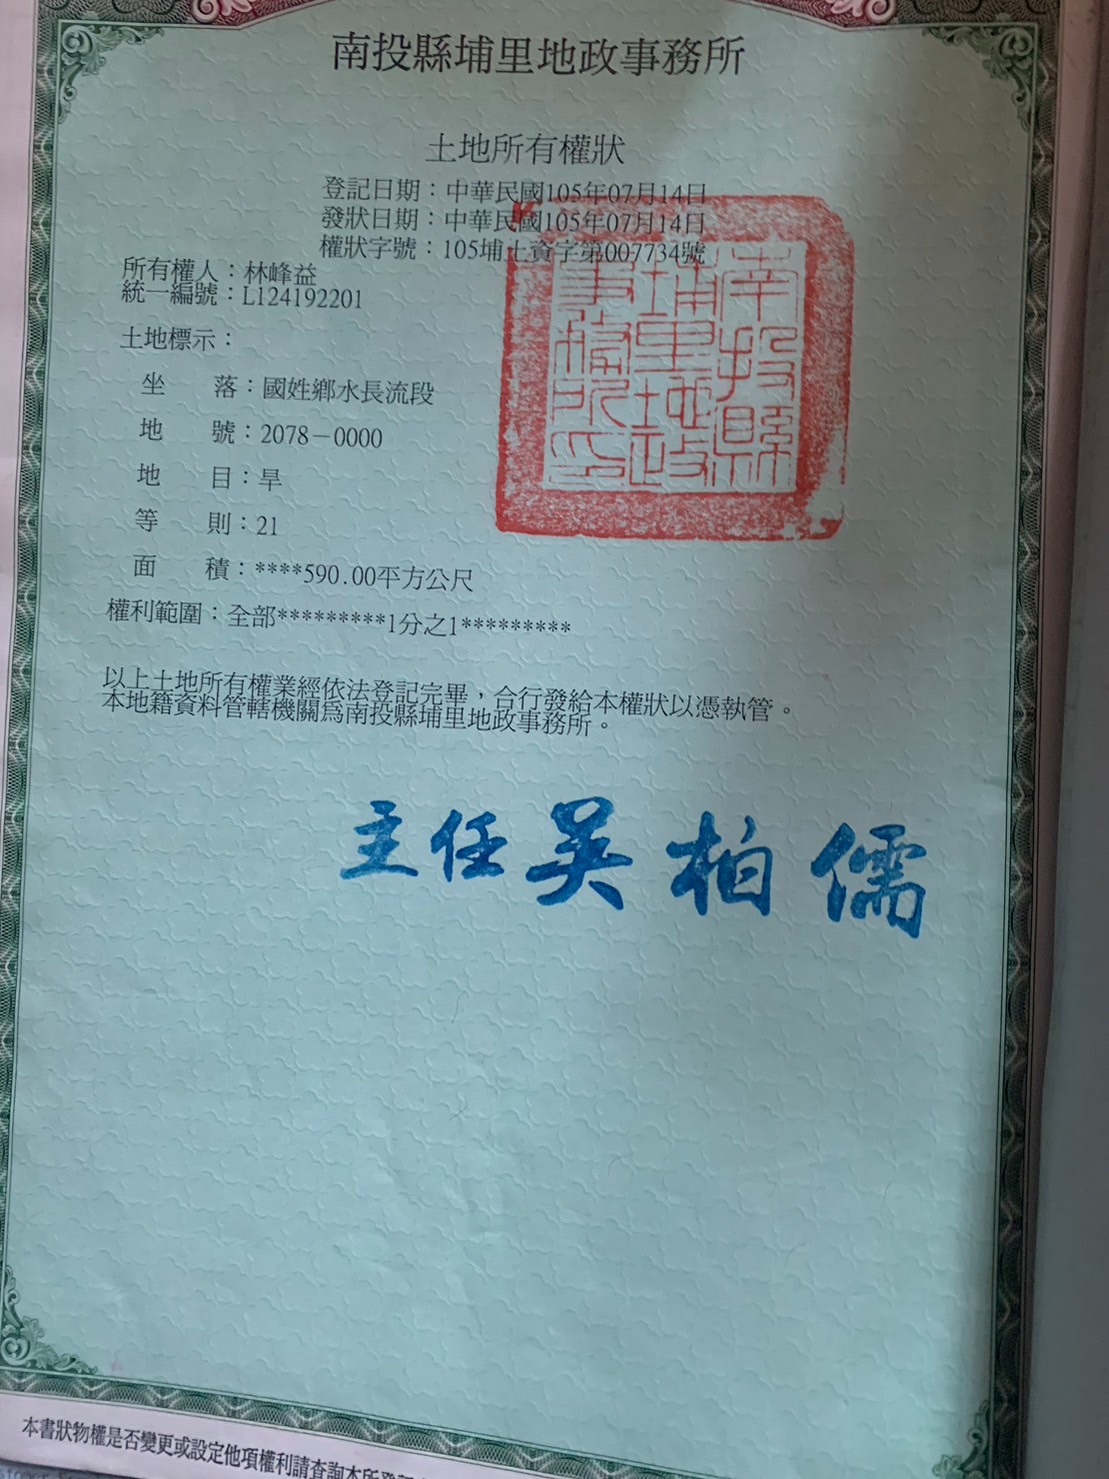 南投縣埔里地政事務所
土地所有權狀
登記日期：中華民國105年07月14日
發狀日期：中華民國105年07月14日
權狀字號：105埔土資字第007734號
所有權人：林峰益
統一編號：L124192201
土地標示：
坐　　落：國姓鄉水長流段
地　　號：2078－0000
地　　目：旱
等　　則：21
面　　積：****590.00平方公尺
權利範圍：全部*********1分之1*********
以上土地所有權業經依法登記完畢，合行發給本權狀以憑執管。
本地籍資料管轄機關為南投縣埔里地政事務所。
南投縣埔里地政事務所印
主任吳柏儒
本書狀物權是否變更或設定他項權利請查詢本所登記